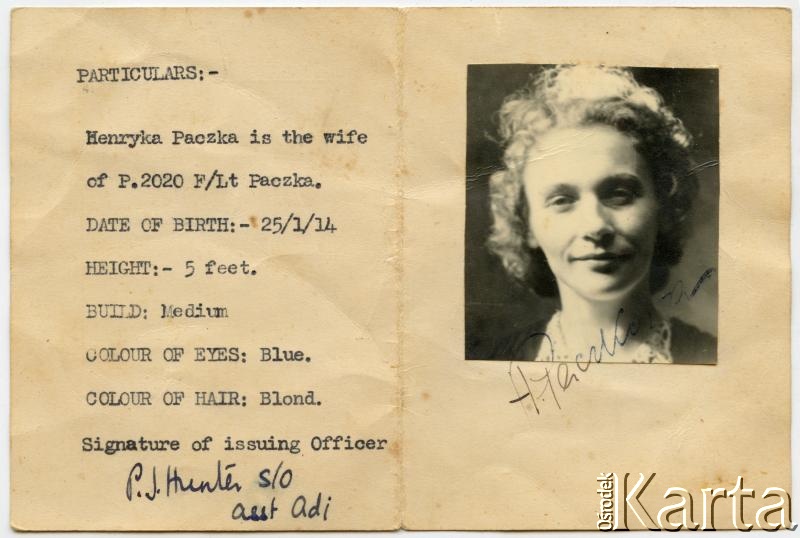 PARTICULARS:-
Henryka Paczka is the wife
of P.2020 F/Lt Paczka.
DATE OF BIRTH:- 25/1/14
HEIGHT:- 5 feet.
BUILD: Medium
COLOUR OF EYES: Blue.
COLOUR OF HAIR: Blond.
Signature of issuing Officer
P.J. Hunter S/O
asst Adj
Ośrodek
Karta